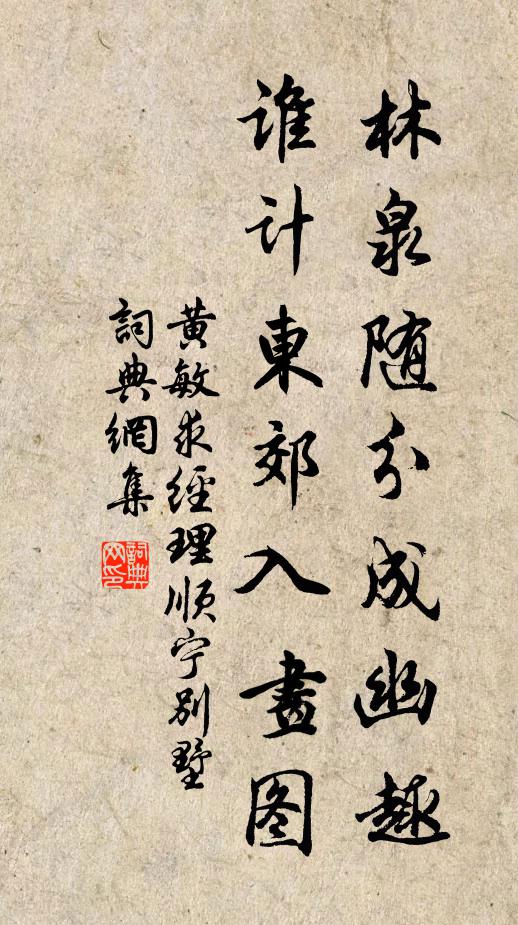 林泉随分成幽趣
谁计東郊入畫图
黄敏求經理順宁别墅
詞典網集
詞典
网印